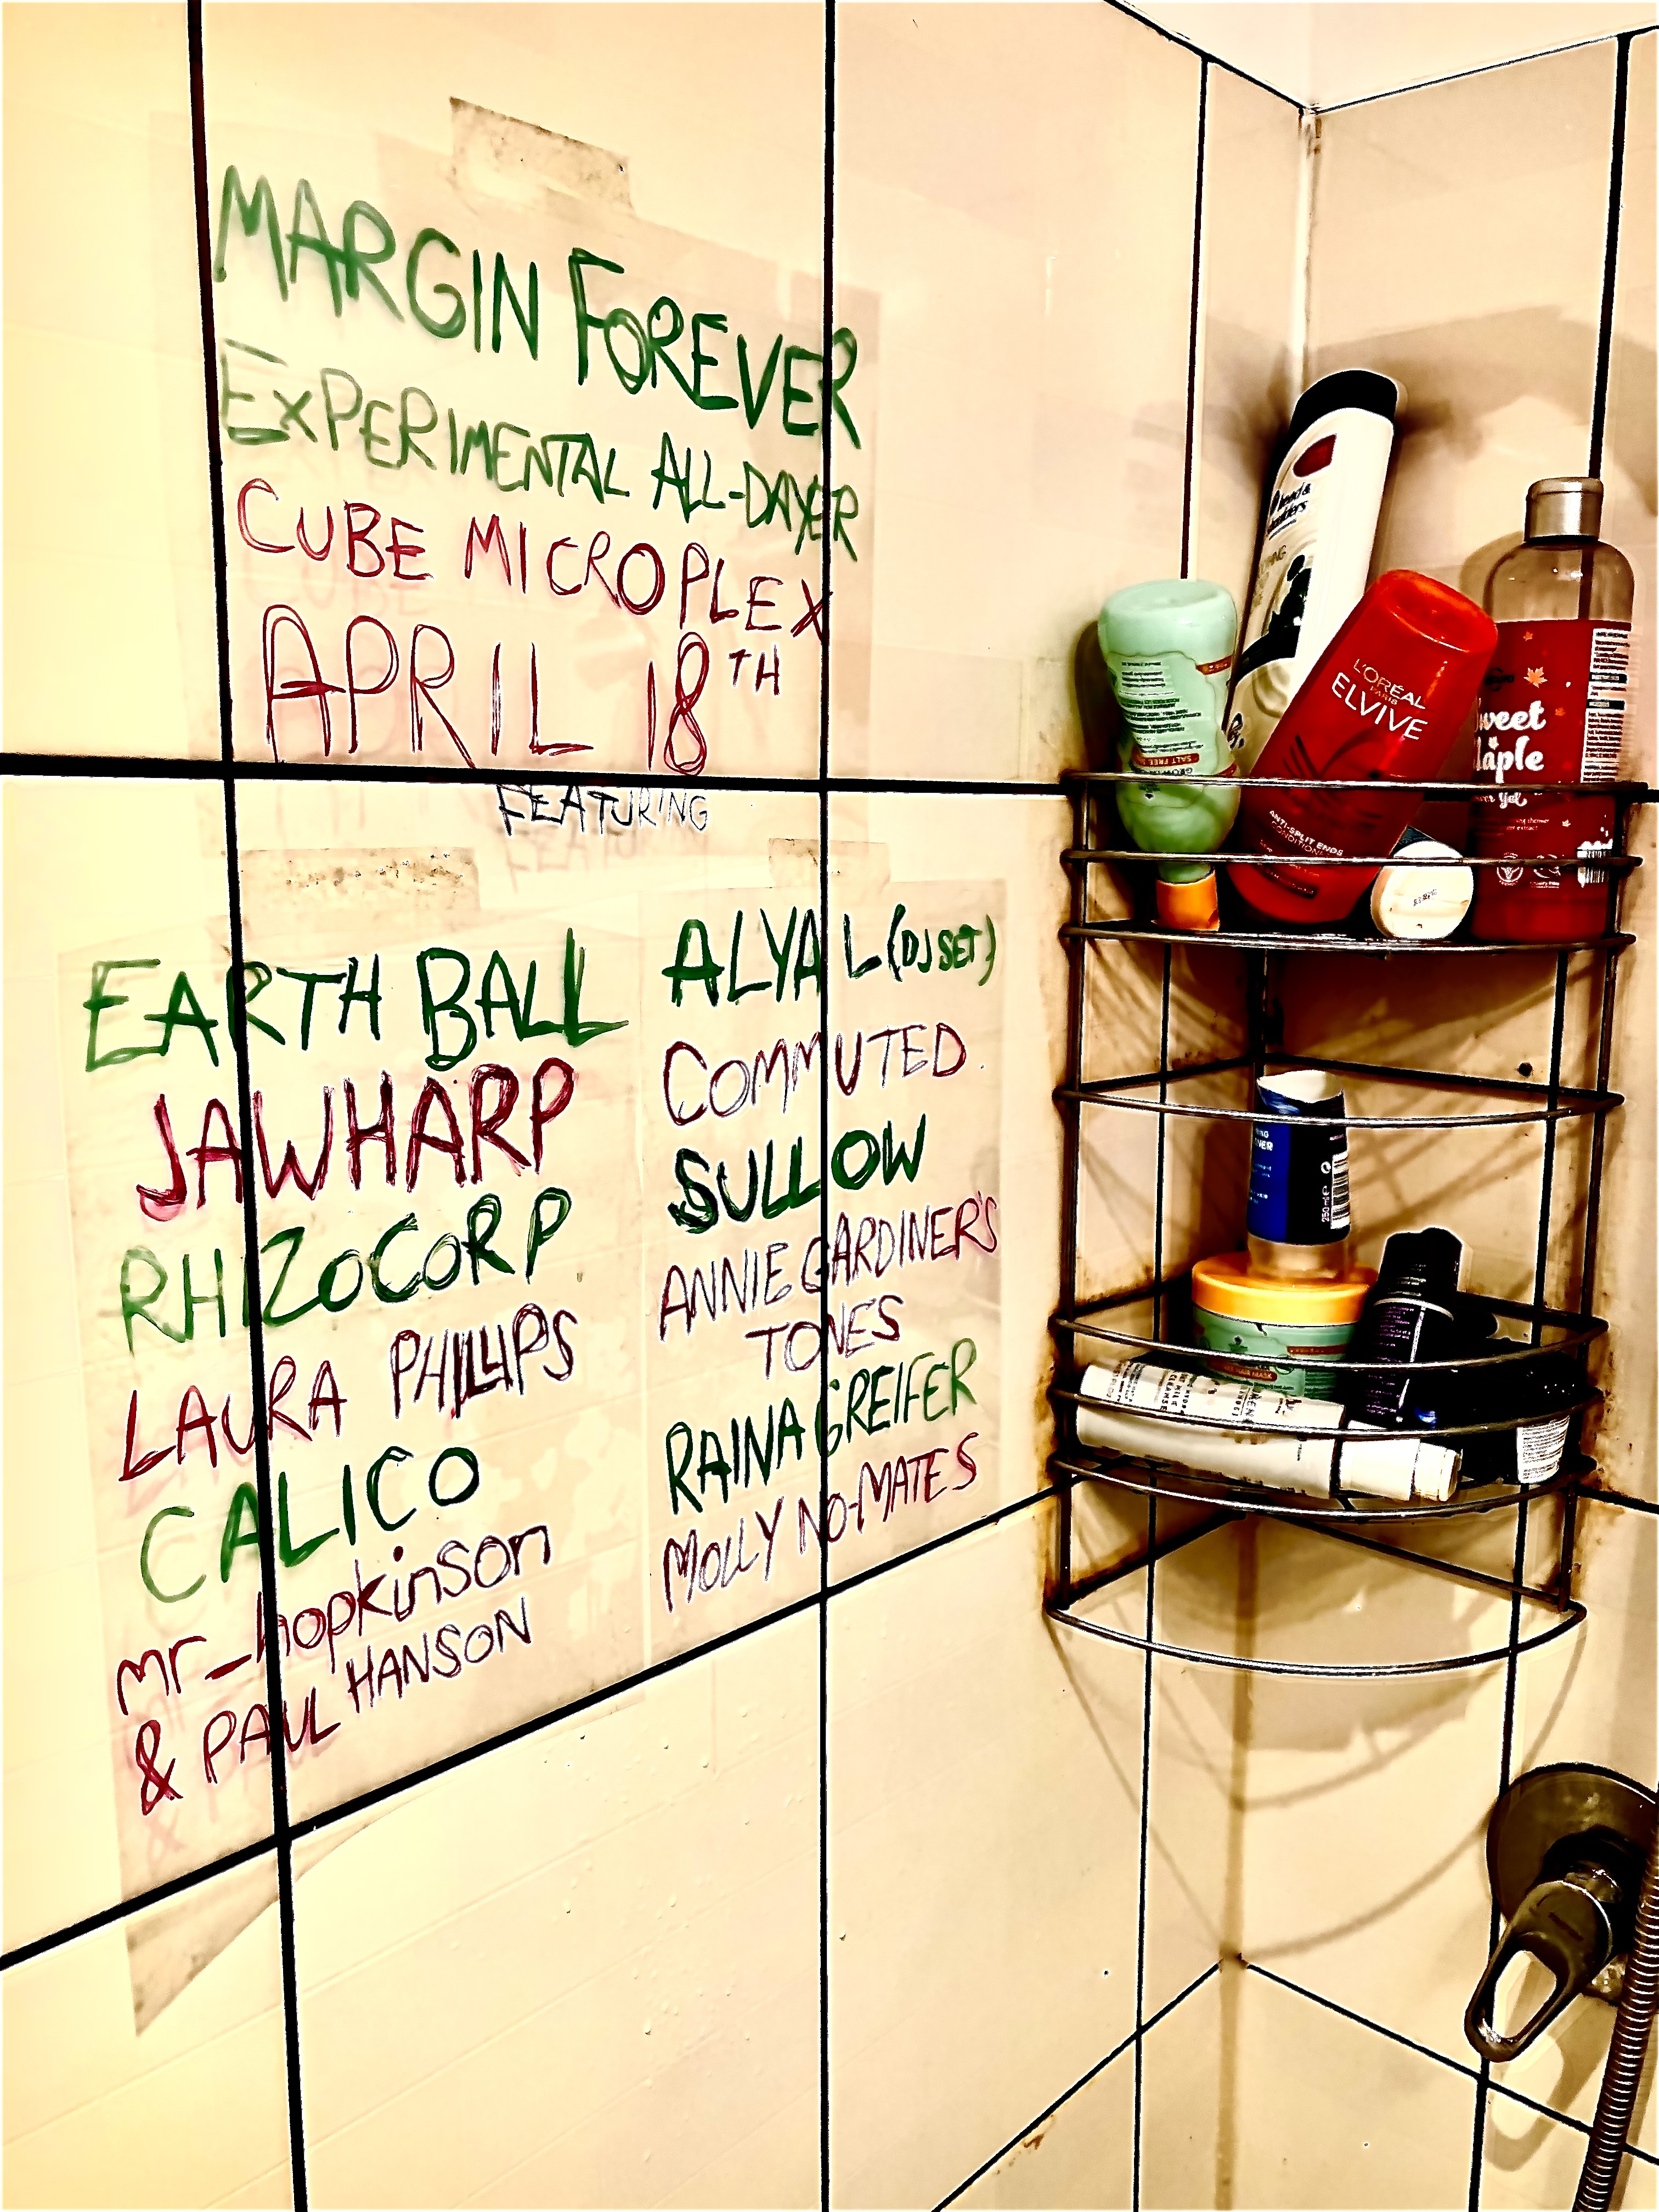 MARGIN FOREVER
EXPERIMENTAL ALL-DAYER
CUBE MICROPLEX
APRIL 18TH
FEATURING
EARTH BALL
JAWHARP
RHIZOCORP
LAURA PHILLIPS
CALICO
mr_hopkinson
& PAUL HANSON
ALYA L (DJ SET)
COMMUTED
SULLOW
ANNIE GARDINER'S
TONES
RAINA GREIFER
MOLLY NO-MATES
L'ORÉAL
PARIS
ELVIVE
ANTI-SPLIT ENDS
CONDITIONER
SALT FREE
250 ml e